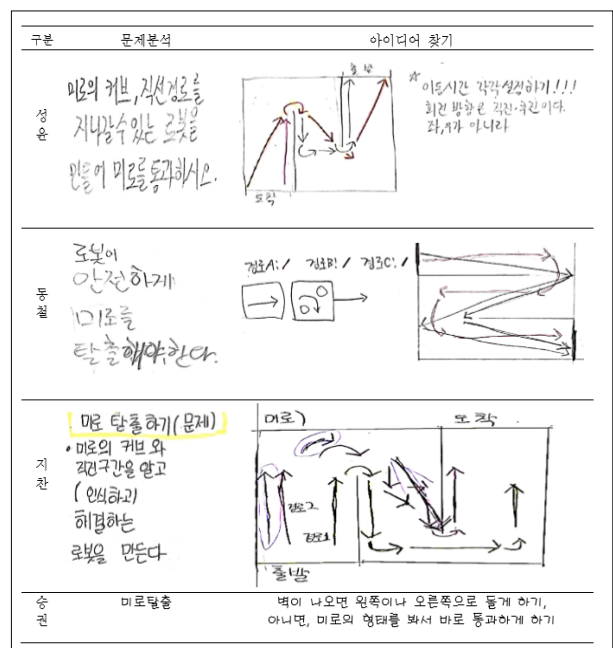 구분 문제분석 아이디어 찾기
성윤
미로의 커브, 직선경로를
지나갈수있는 로봇을
만들어 미로를 통과하시오.
출발
도착
☆ 이동시간 각각 설정하기!!!
회전 방향은 직진·후진이다.
좌,우가 아니라
동철
로봇이
안전하게
미로를
탈출해야한다.
경로A:/ 경로B:/ 경로C:/
지찬
미로 탈출하기(문제)
• 미로의 커브와
직진구간을 알고
(인식하고)
해결하는
로봇을 만든다
미로)
도착
경로2
경로1
출발
승권
미로탈출
벽이 나오면 왼쪽이나 오른쪽으로 돌게 하기,
아니면, 미로의 형태를 봐서 바로 통과하게 하기